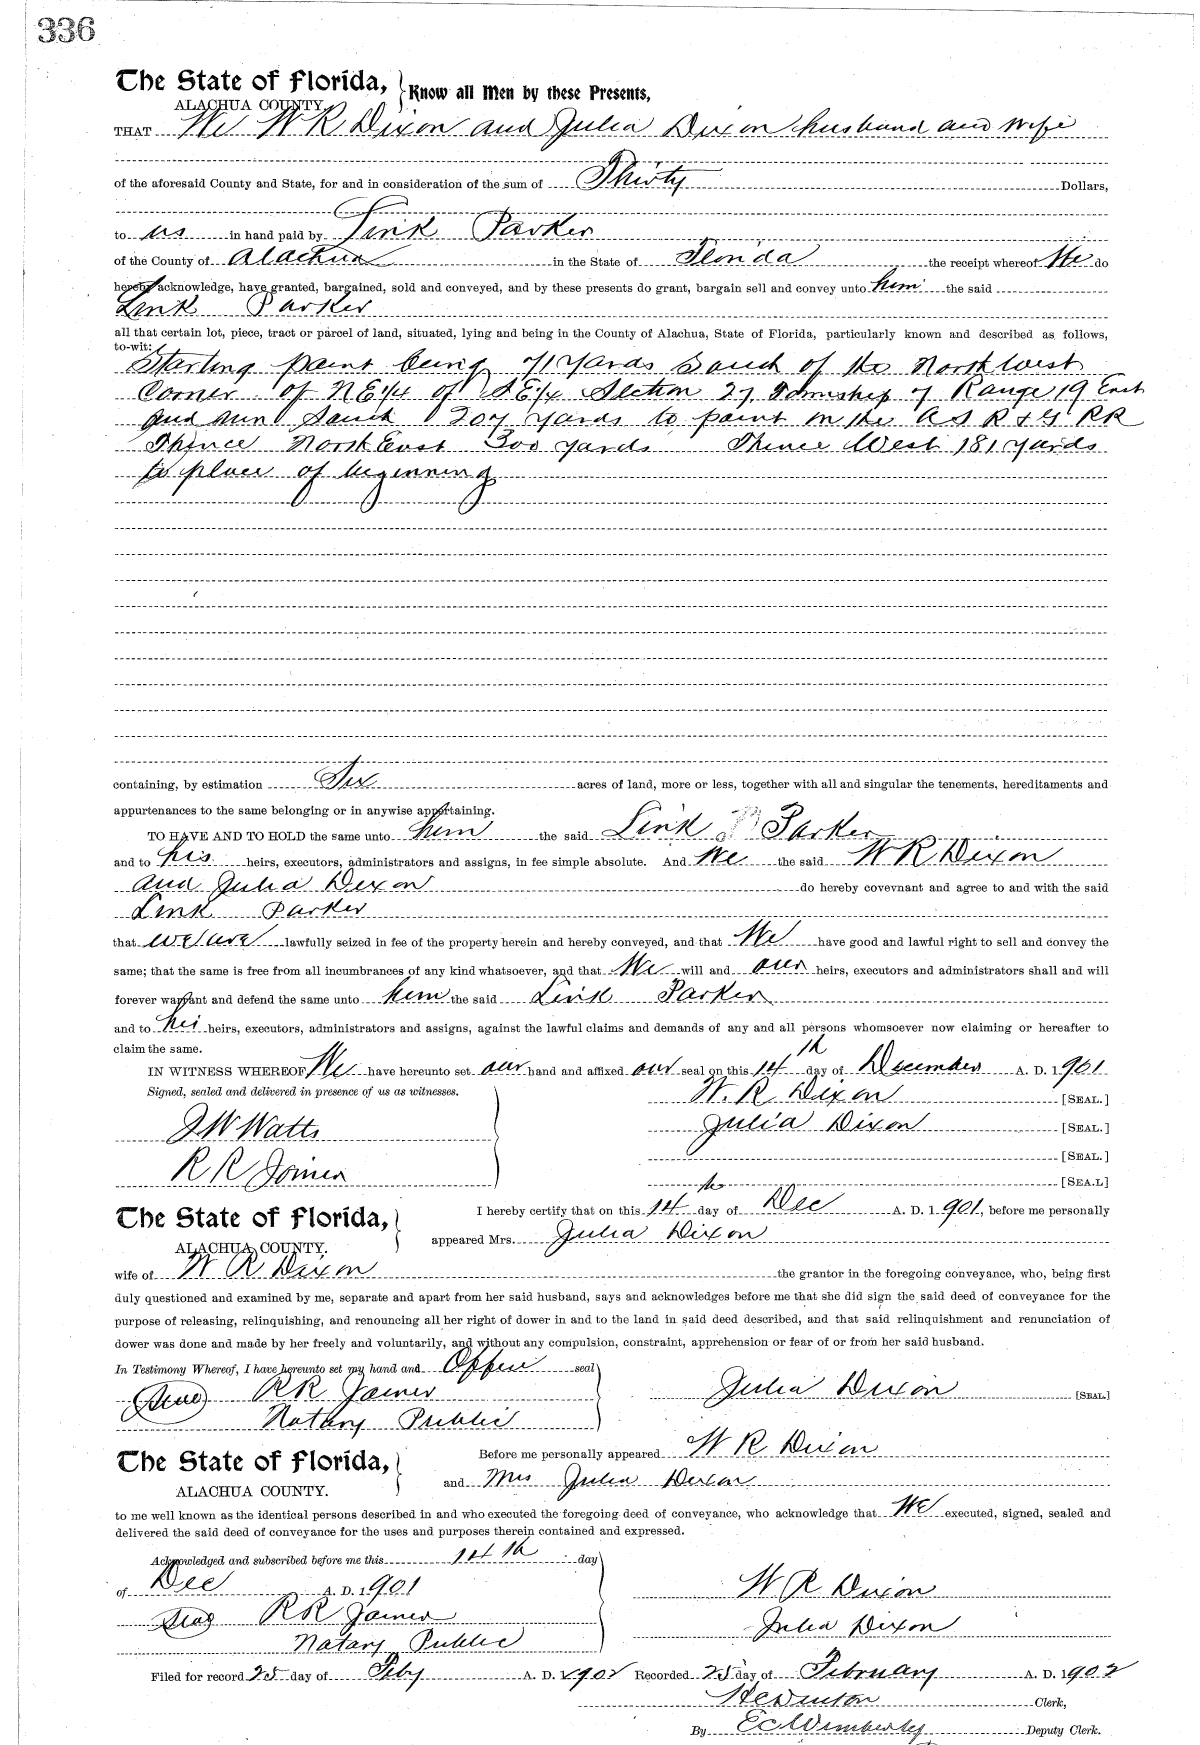 336
The State of Florida, Know all Men by these Presents,
ALACHUA COUNTY.
THAT We W R Dixon and Julia Dixon husband and wife
of the aforesaid County and State, for and in consideration of the sum of Thirty Dollars,
to us in hand paid by Link Parker
of the County of Alachua in the State of Florida the receipt whereof We do
hereby acknowledge, have granted, bargained, sold and conveyed, and by these presents do grant, bargain sell and convey unto him the said
Link Parker
all that certain lot, piece, tract or parcel of land, situated, lying and being in the County of Alachua, State of Florida, particularly known and described as follows,
to-wit:
Starting point being 71 yards South of the North West
Corner of N E 1/4 of S E 1/4 Section 27 Township 7 Range 19 East
and run South 207 yards to point on the A S R & G RR
Thence North East 300 yards Thence West 181 yards
to place of beginning
containing, by estimation Six acres of land, more or less, together with all and singular the tenements, hereditaments and
appurtenances to the same belonging or in anywise appertaining.
TO HAVE AND TO HOLD the same unto him the said Link Parker
and to his heirs, executors, administrators and assigns, in fee simple absolute. And We the said W R Dixon
and Julia Dixon do hereby covevnant and agree to and with the said
Link Parker
that we are lawfully seized in fee of the property herein and hereby conveyed, and that We have good and lawful right to sell and convey the
same; that the same is free from all incumbrances of any kind whatsoever, and that We will and our heirs, executors and administrators shall and will
forever warrant and defend the same unto him the said Link Parker
and to his heirs, executors, administrators and assigns, against the lawful claims and demands of any and all persons whomsoever now claiming or hereafter to
claim the same.
IN WITNESS WHEREOF We have hereunto set our hand and affixed our seal on this 14th day of December A. D. 1901
Signed, sealed and delivered in presence of us as witnesses. W. R Dixon [SEAL.]
J W Watts Julia Dixon [SEAL.]
[SEAL.]
R R Joiner [SEA.L]
The State of Florida, I hereby certify that on this 14th day of Dec A. D. 1901, before me personally
ALACHUA COUNTY. appeared Mrs. Julia Dixon
wife of W R Dixon the grantor in the foregoing conveyance, who, being first
duly questioned and examined by me, separate and apart from her said husband, says and acknowledges before me that she did sign the said deed of conveyance for the
purpose of releasing, relinquishing, and renouncing all her right of dower in and to the land in said deed described, and that said relinquishment and renunciation of
dower was done and made by her freely and voluntarily, and without any compulsion, constraint, apprehension or fear of or from her said husband.
In Testimony Whereof, I have hereunto set my hand and Office seal
Seal R R Joiner Julia Dixon [SEAL.]
Notary Public
The State of Florida, Before me personally appeared W R Dixon
ALACHUA COUNTY. and Mrs Julia Dixon
to me well known as the identical persons described in and who executed the foregoing deed of conveyance, who acknowledge that We executed, signed, sealed and
delivered the said deed of conveyance for the uses and purposes therein contained and expressed.
Acknowledged and subscribed before me this 14th day
of Dec A. D. 1901 W R Dixon
Seal R R Joiner Julia Dixon
Notary Public
Filed for record 25 day of Feby A. D. 1902 Recorded 25 day of February A. D. 1902
H C Denton Clerk,
By E C Wimberly Deputy Clerk.